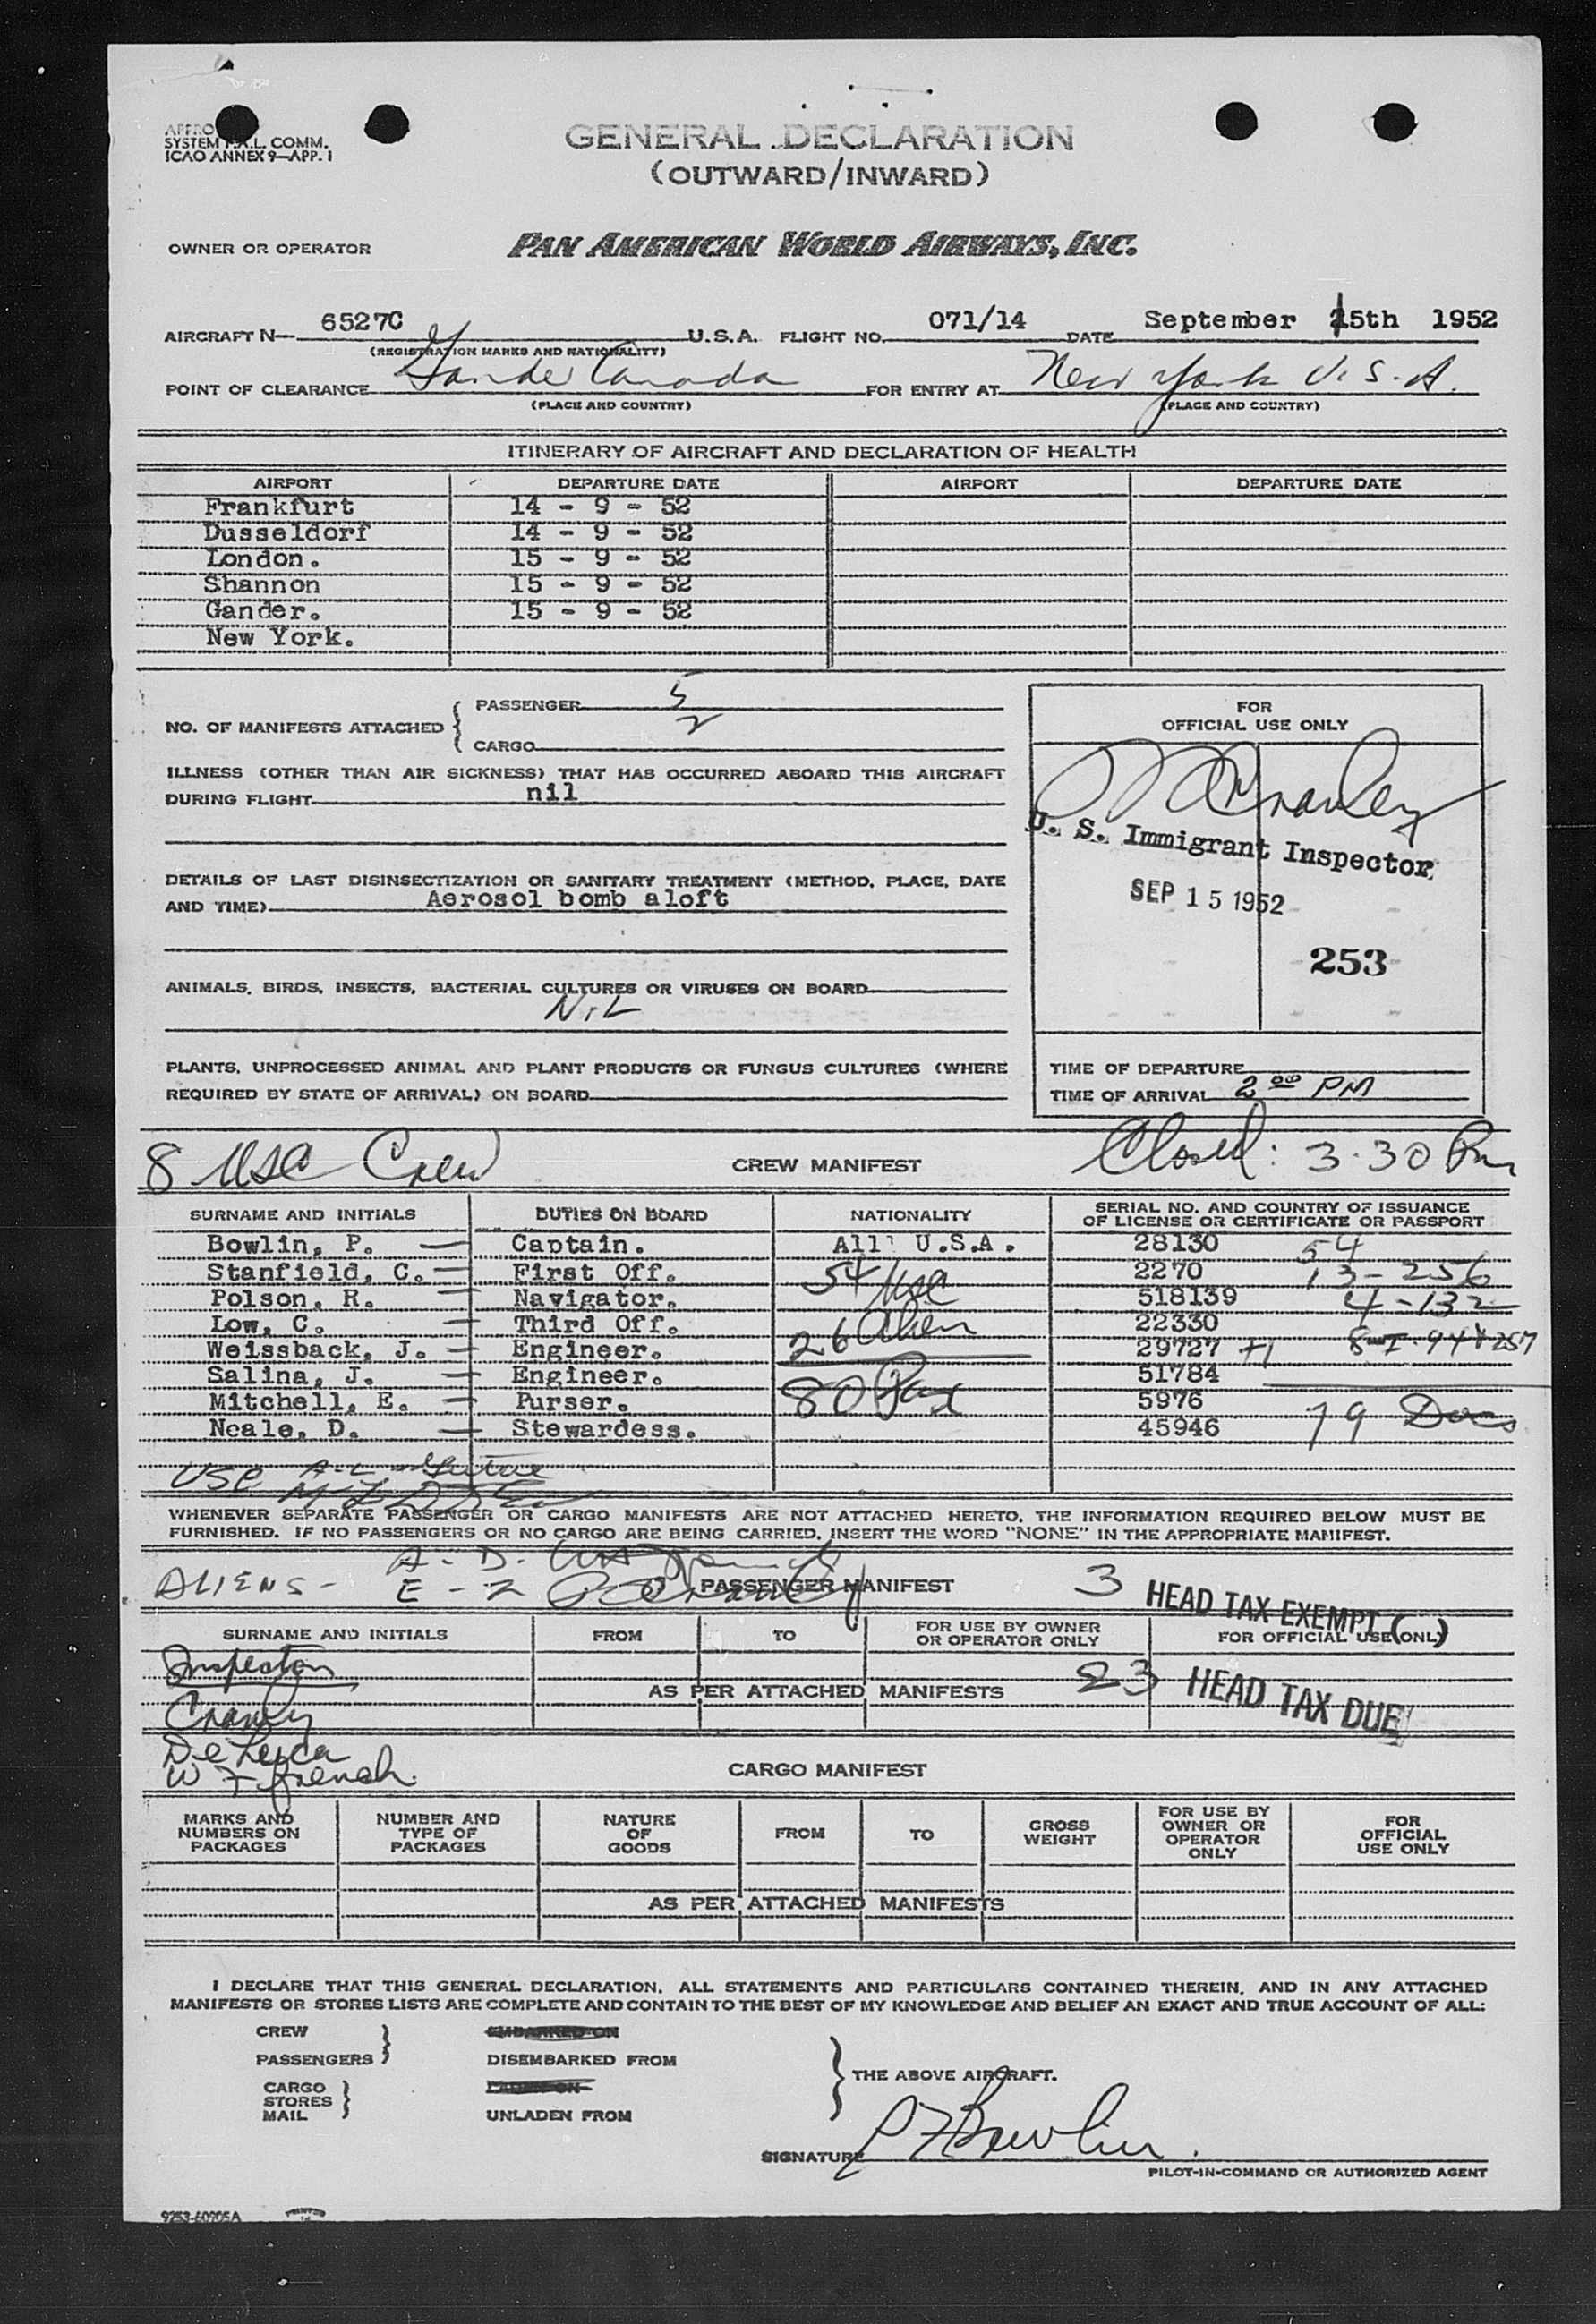 SYSTEM F.A.L. COMM.
ICAO ANNEX 9—APP. 1
GENERAL DECLARATION
(OUTWARD/INWARD)
OWNER OR OPERATOR PAN AMERICAN WORLD AIRWAYS, INC.
AIRCRAFT N— 6527C U.S.A. FLIGHT NO. 071/14 DATE September 15th 1952
(REGISTRATION MARKS AND NATIONALITY)
POINT OF CLEARANCE Gander Canada FOR ENTRY AT New York U.S.A.
(PLACE AND COUNTRY) (PLACE AND COUNTRY)
ITINERARY OF AIRCRAFT AND DECLARATION OF HEALTH
AIRPORT DEPARTURE DATE AIRPORT DEPARTURE DATE
Frankfurt 14 - 9 - 52
Dusseldorf 14 - 9 - 52
London. 15 - 9 - 52
Shannon 15 - 9 - 52
Gander. 15 - 9 - 52
New York.
NO. OF MANIFESTS ATTACHED
PASSENGER 5
CARGO 2
ILLNESS (OTHER THAN AIR SICKNESS) THAT HAS OCCURRED ABOARD THIS AIRCRAFT
DURING FLIGHT nil
DETAILS OF LAST DISINSECTIZATION OR SANITARY TREATMENT (METHOD, PLACE, DATE
AND TIME) Aerosol bomb aloft
ANIMALS, BIRDS, INSECTS, BACTERIAL CULTURES OR VIRUSES ON BOARD
NiL
PLANTS, UNPROCESSED ANIMAL AND PLANT PRODUCTS OR FUNGUS CULTURES (WHERE
REQUIRED BY STATE OF ARRIVAL) ON BOARD
FOR
OFFICIAL USE ONLY
U. S. Immigrant Inspector
SEP 15 1952
253
TIME OF DEPARTURE
TIME OF ARRIVAL 2 00 PM
8 USC Crew CREW MANIFEST Closed: 3.30 Pm
SURNAME AND INITIALS DUTIES ON BOARD NATIONALITY SERIAL NO. AND COUNTRY OF ISSUANCE
OF LICENSE OR CERTIFICATE OR PASSPORT
Bowlin, P. — Captain. All U.S.A. 28130 54
Stanfield, C. — First Off. 54 USC 2270 13-256
Polson, R. — Navigator. 518139 4-132
Low, C. — Third Off. 26 Alien 22330
Weissback, J. — Engineer. 29727 +1
Salina, J. — Engineer. 80 Pax 51784
Mitchell, E. — Purser. 5976 79 Docs
Neale, D. — Stewardess. 45946
USC A-L
WHENEVER SEPARATE PASSENGER OR CARGO MANIFESTS ARE NOT ATTACHED HERETO, THE INFORMATION REQUIRED BELOW MUST BE
FURNISHED. IF NO PASSENGERS OR NO CARGO ARE BEING CARRIED, INSERT THE WORD "NONE" IN THE APPROPRIATE MANIFEST.
A - D.
ALIENS - E - Z PASSENGER MANIFEST 3 HEAD TAX EXEMPT
SURNAME AND INITIALS FROM TO FOR USE BY OWNER
OR OPERATOR ONLY FOR OFFICIAL USE (ONLY)
Inspectors
AS PER ATTACHED MANIFESTS 23 HEAD TAX DUE
Cranley
W F French
CARGO MANIFEST
MARKS AND
NUMBERS ON
PACKAGES
NUMBER AND
TYPE OF
PACKAGES
NATURE
OF
GOODS
FROM
TO
GROSS
WEIGHT
FOR USE BY
OWNER OR
OPERATOR
ONLY
FOR
OFFICIAL
USE ONLY
AS PER ATTACHED MANIFESTS
I DECLARE THAT THIS GENERAL DECLARATION, ALL STATEMENTS AND PARTICULARS CONTAINED THEREIN, AND IN ANY ATTACHED
MANIFESTS OR STORES LISTS ARE COMPLETE AND CONTAIN TO THE BEST OF MY KNOWLEDGE AND BELIEF AN EXACT AND TRUE ACCOUNT OF ALL:
CREW EMBARKED ON
PASSENGERS DISEMBARKED FROM
THE ABOVE AIRCRAFT.
CARGO LADEN ON
STORES
MAIL UNLADEN FROM
SIGNATURE P F Bowlin.
PILOT-IN-COMMAND OR AUTHORIZED AGENT